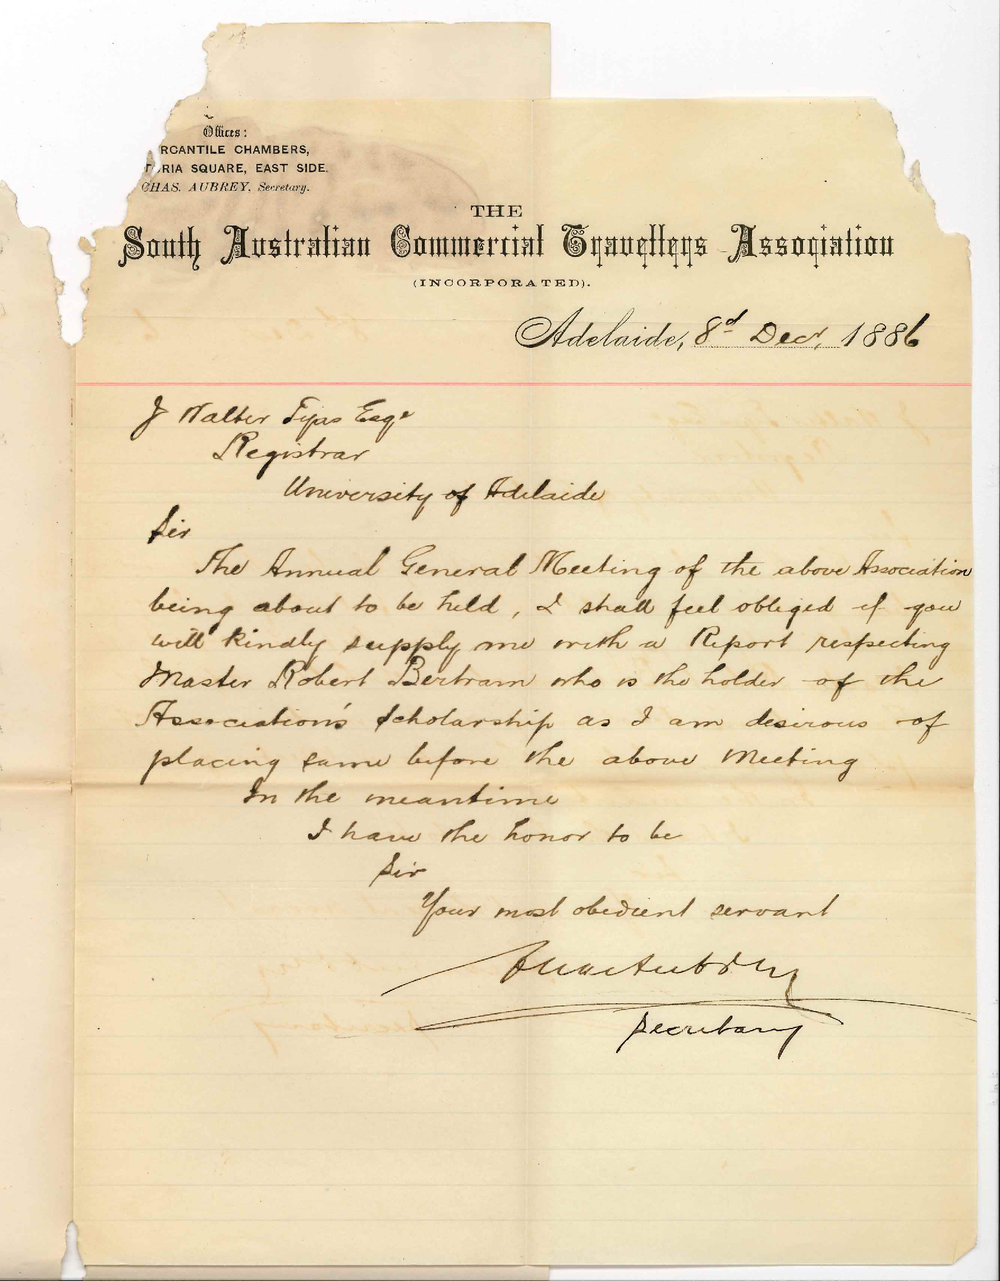 Offices:
RCANTILE CHAMBERS,
TORIA SQUARE, EAST SIDE.
CHAS. AUBREY, Secretary.
THE
South Australian Commercial Travellers Association
(INCORPORATED).
Adelaide, 8d Decr, 1886
J Walter Tyas Esqe
Registrar
University of Adelaide
Sir
The Annual General Meeting of the above Association
being about to be held, I shall feel obliged if you
will kindly supply me with a Report respecting
Master Robert Bertram who is the holder of the
Association's Scholarship as I am desirous of
placing same before the above Meeting
In the meantime
I have the honor to be
Sir
Your most obedient servant
Chas Aubrey
Secretary